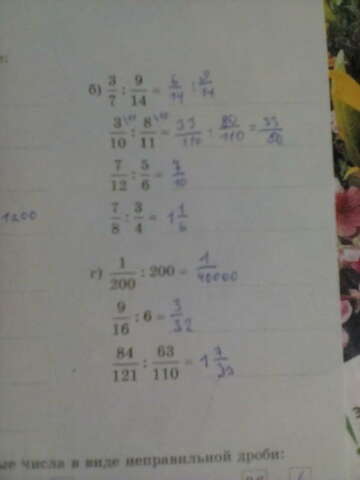 б) 3/7 : 9/14 = 6/14 : 9/14
3/10 : 8/11 = 33/110 : 80/110 = 33/80
7/12 : 5/6 = 7/10
7/8 : 3/4 = 1 1/6
1200
г) 1/200 : 200 = 1/40000
9/16 : 6 = 3/32
84/121 : 63/110 = 1 7/33
ые числа в виде неправильной дроби: